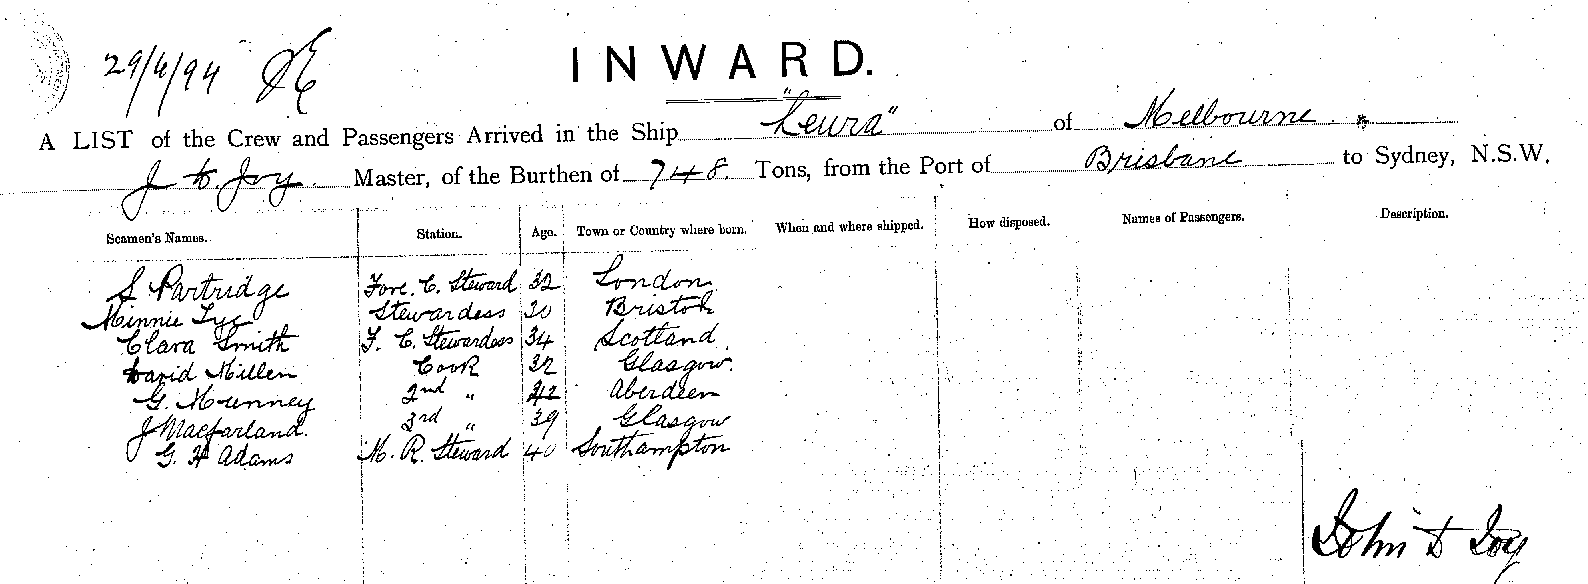 29/4/94
INWARD.
A LIST of the Crew and Passengers Arrived in the Ship "Leura" of Melbourne
J Joy. Master, of the Burthen of 748. Tons, from the Port of Brisbane to Sydney, N.S.W.
Seamen's Names. Station. Age. Town or Country where born. When and where shipped. How disposed. Names of Passengers. Description.
S Partridge Fore. C. Steward 32 London
Minnie Stewardess 30 Bristol
Clara Smith F. C. Stewardess 34 Scotland
David Millen Cook 32 Glasgow.
G. Munney 2nd " 42 Aberdeen
J Macfarland. 3rd " 39 Glasgow
G. H Adams M. R. Steward 40 Southampton
John Joy